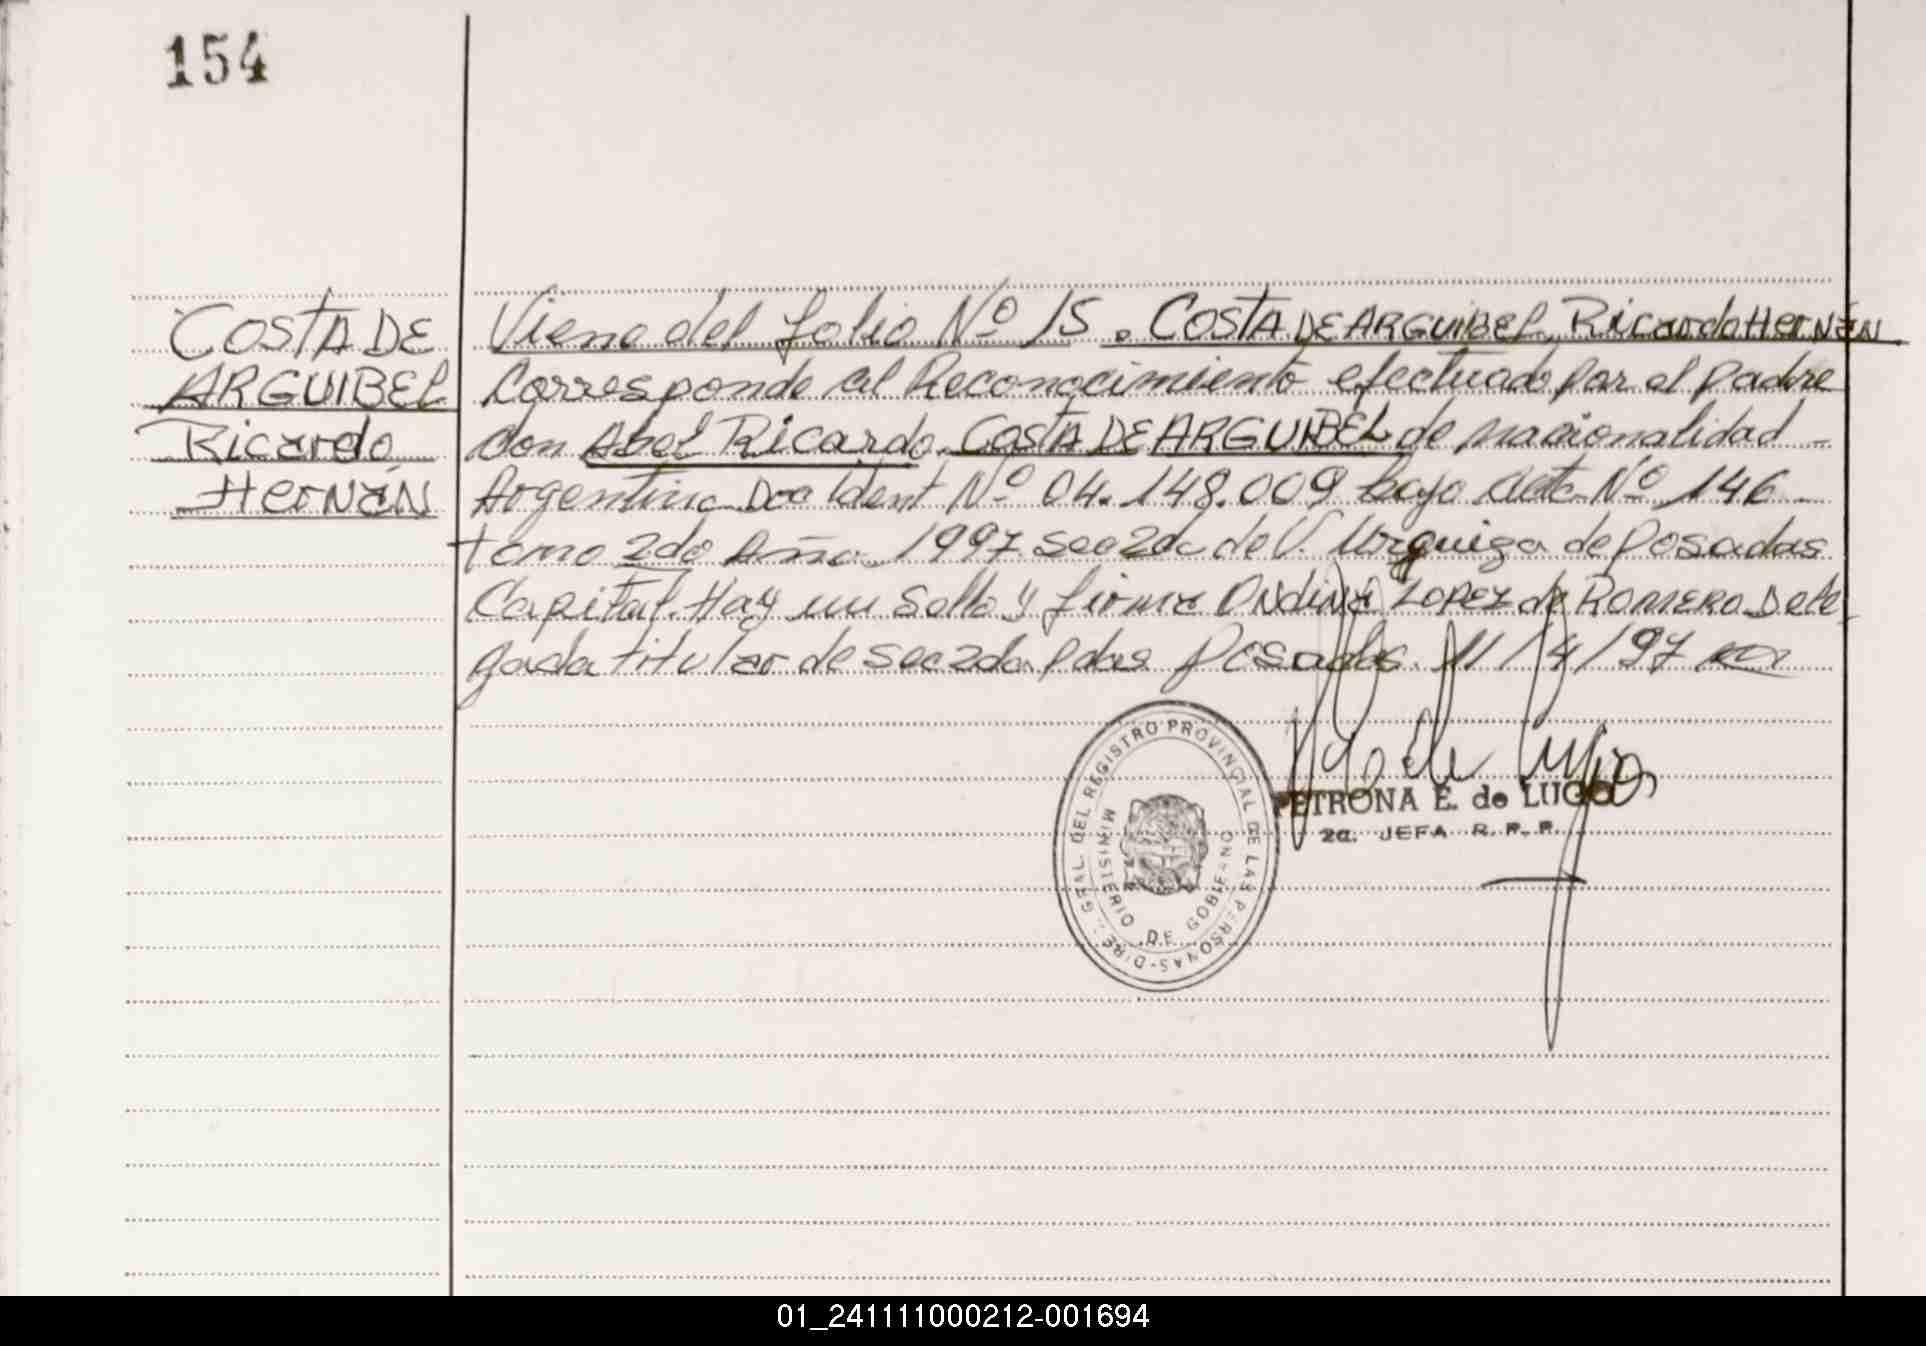 154
COSTA DE
ARGUIBEL
Ricardo
HerNàN
Viene del folio Nº 15. COSTA DE ARGUIBEL, Ricardo HerNàN
Corresponde al Reconocimiento efectuado por el padre
don Abel Ricardo COSTA DE ARGUIBEL de nacionalidad -
Argentina Doc Ident Nº 04.148.009 bajo Acta Nº 146
tomo 2do Año 1997 Sec 2da de V. Urquiza de Posadas
Capital. Hay un Sello y firma ONdiNa LOPEZ de ROMERO Dele
gada titular de Sec 2da Pdas Posadas. 11/4/97
PETRONA E. de LUGO
2a. JEFA R. P. P.
DIREC. GRAL. DEL REGISTRO PROVINCIAL DE LAS PERSONAS-
MINISTERIO DE GOBIERNO
01_241111000212-001694